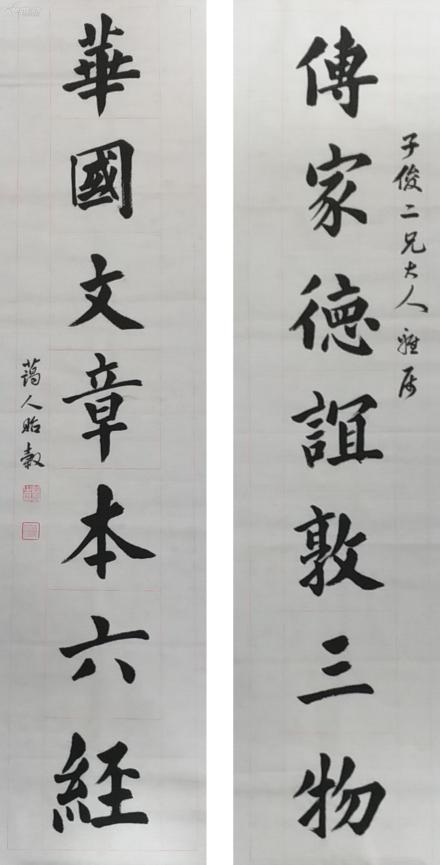 子俊二兄大人雅属
傳家德誼敦三物
華國文章本六經
蔼人貽穀